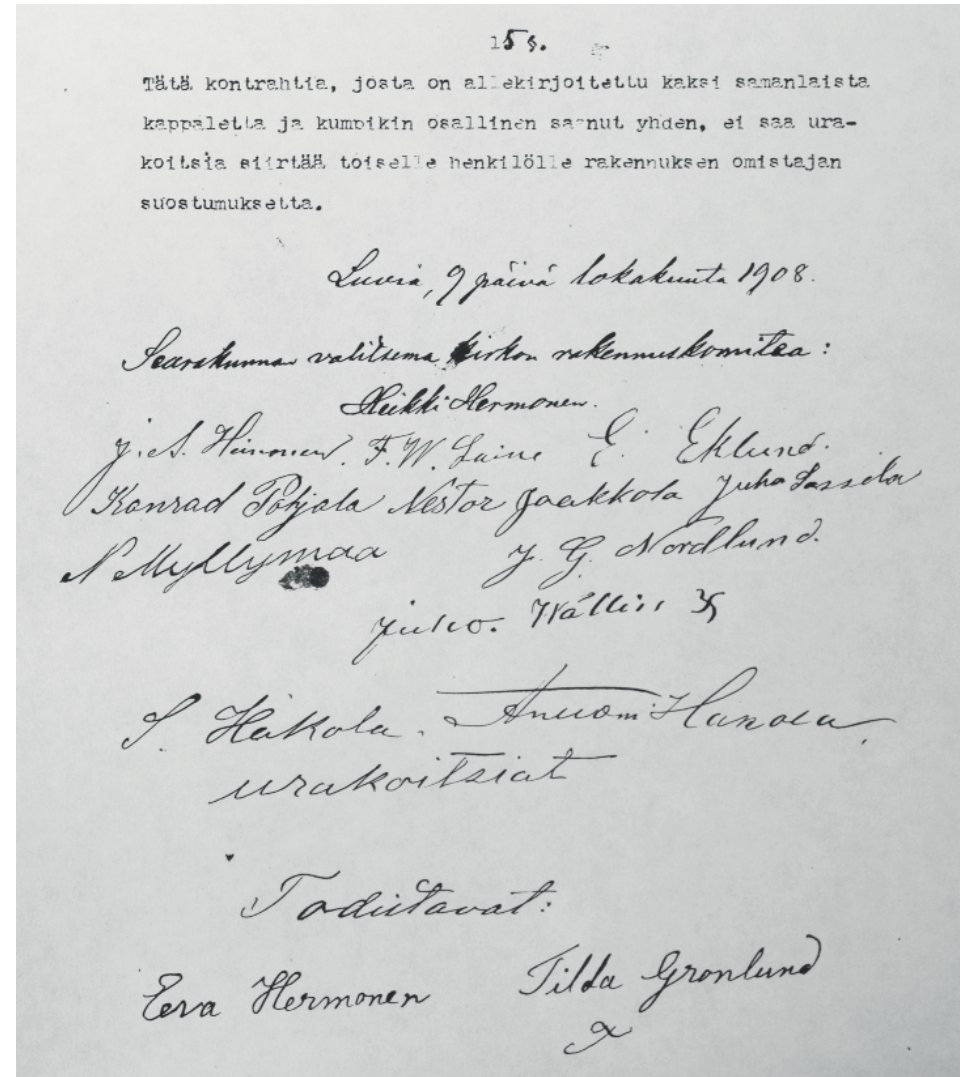 15 §.
Tätä kontrahtia, josta on allekirjoitettu kaksi samanlaista
kappaletta ja kumpikin osallinen saanut yhden, ei saa ura-
koitsia siirtää toiselle henkilölle rakennuksen omistajan
suostumuksetta.
Luvia, 9 päivä lokakuuta 1908.
Seurakunnan valitsema kirkon rakennuskomitea:
Heikki Hermonen.
J. S. Heinonen. F. W. Laine E. Eklund.
Konrad Pohjola Nestor Jaakkola Juha Lassila
N Myllymaa J. G. Nordlund.
Juho.
S. Hakola.
urakoitsiat
Todistavat:
Eeva Hermonen Tilda Gronlund